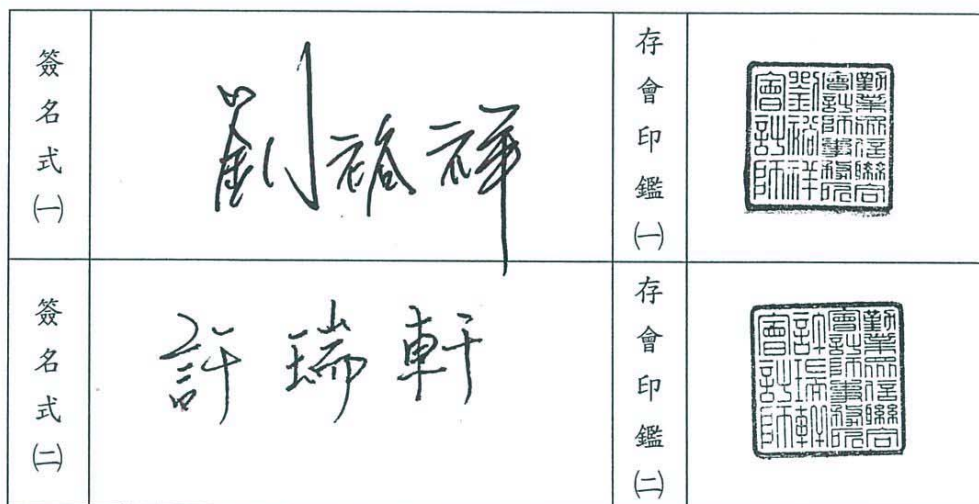 簽名式㈠
劉裕祥
存會印鑑㈠
勤業眾信聯合
會計師事務所
劉裕祥
會計師
簽名式㈡
許瑞軒
存會印鑑㈡
勤業眾信聯合
會計師事務所
許瑞軒
會計師